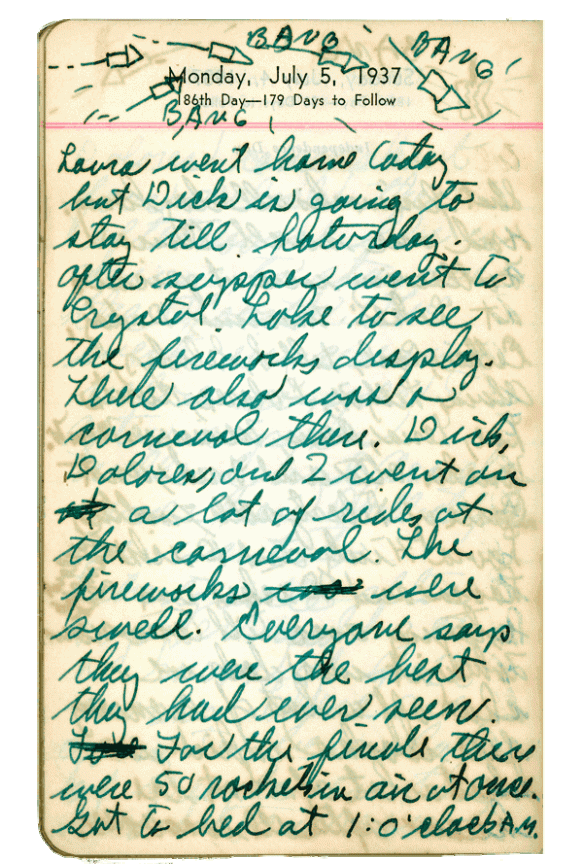 BANG BANG'
Monday, July 5, 1937
186th Day—179 Days to Follow
BANG!
Laura went home today
but Dick is going to
stay till Saturday.
after supper went to
Crystal Lake to see
the fireworks display.
There also was a
carneval there. Dick,
Dolores, and I went on
a lot of rides at
the carneval. The
fireworks were
swell. Everyone says
they were the best
they had ever seen.
For the finale there
were 50 rockets in air at once.
Got to bed at 1:0'clock A.M.